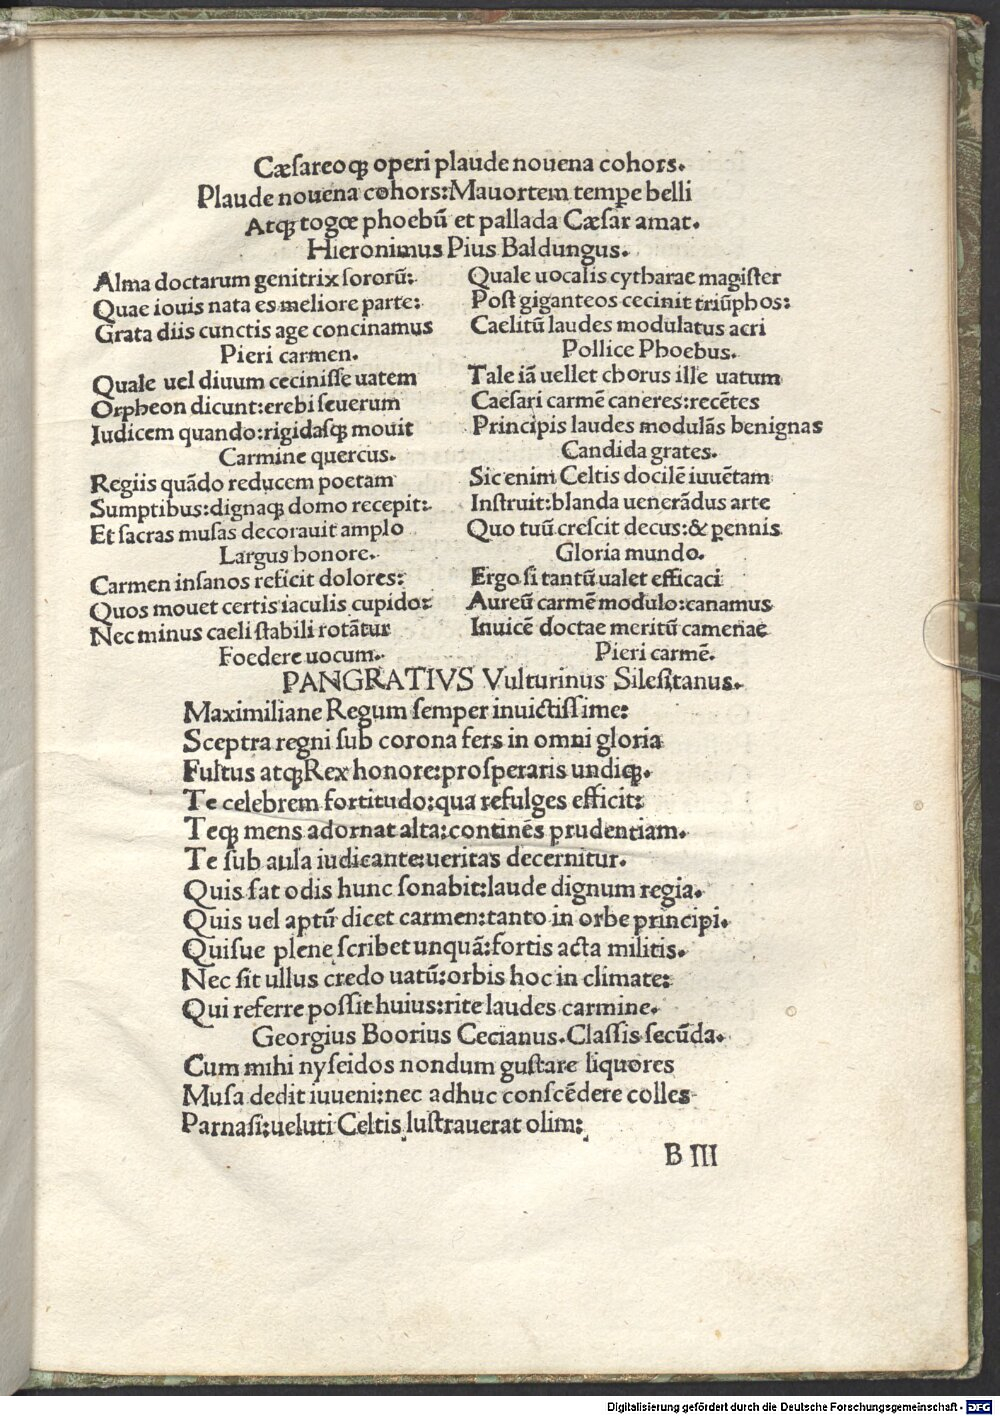 Cæſareoꝙ operi plaude nouena cohors.
Plaude nouena cohors: Mauortem tempe belli
Atꝙ togœ phoebū et pallada Cæſar amat.
Hieronimus Pius Baldungus.
Alma doctarum genitrix ſororū:
Quae iouis nata es meliore parte:
Grata diis cunctis age concinamus
Pieri carmen.
Quale uel diuum ceciniſſe uatem
Orpheon dicunt: erebi ſeuerum
Iudicem quando: rigidaſꝙ mouit
Carmine quercus.
Regiis quādo reducem poetam
Sumptibus: dignaꝙ domo recepit:
Et ſacras muſas decorauit amplo
Largus honore.
Carmen inſanos reficit dolores:
Quos mouet certis iaculis cupido:
Nec minus caeli ſtabili rotātur
Foedere uocum.
Quale uocalis cytharae magiſter
Poſt giganteos cecinit triūphos:
Caelitū laudes modulatus acri
Pollice Phoebus.
Tale iā uellet chorus ille uatum
Caeſari carmē caneres: recētes
Principis laudes modulās benignas
Candida grates.
Sic enim Celtis docilē iuuētam
Inſtruit: blanda uenerādus arte
Quo tuū creſcit decus: & pennis
Gloria mundo.
Ergo ſi tantū ualet efficaci
Aureū carmē modulo: canamus
Inuicē doctae meritū camenae
Pieri carmē.
PANGRATIVS Vulturinus Sileſitanus.
Maximiliane Regum ſemper inuictiſſime:
Sceptra regni ſub corona fers in omni gloria
Fultus atꝙ Rex honore: proſperaris undiꝙ.
Te celebrem fortitudo: qua refulges efficit:
Teꝙ mens adornat alta: continēs prudentiam.
Te ſub aula iudicante: ueritas decernitur.
Quis ſat odis hunc ſonabit: laude dignum regia.
Quis uel aptū dicet carmen: tanto in orbe principi.
Quiſue plenę ſcribet unquā: fortis acta militis.
Nec ſit ullus credo uatū: orbis hoc in climate:
Qui referre poſſit huius: rite laudes carmine.
Georgius Boorius Cecianus. Claſſis ſecūda.
Cum mihi nyſeidos nondum guſtare liquores
Muſa dedit iuueni: nec adhuc conſcēdere colles
Parnaſi: ueluti Celtis luſtrauerat olim:
B III
Digitalisierung gefördert durch die Deutsche Forschungsgemeinschaft - DFG